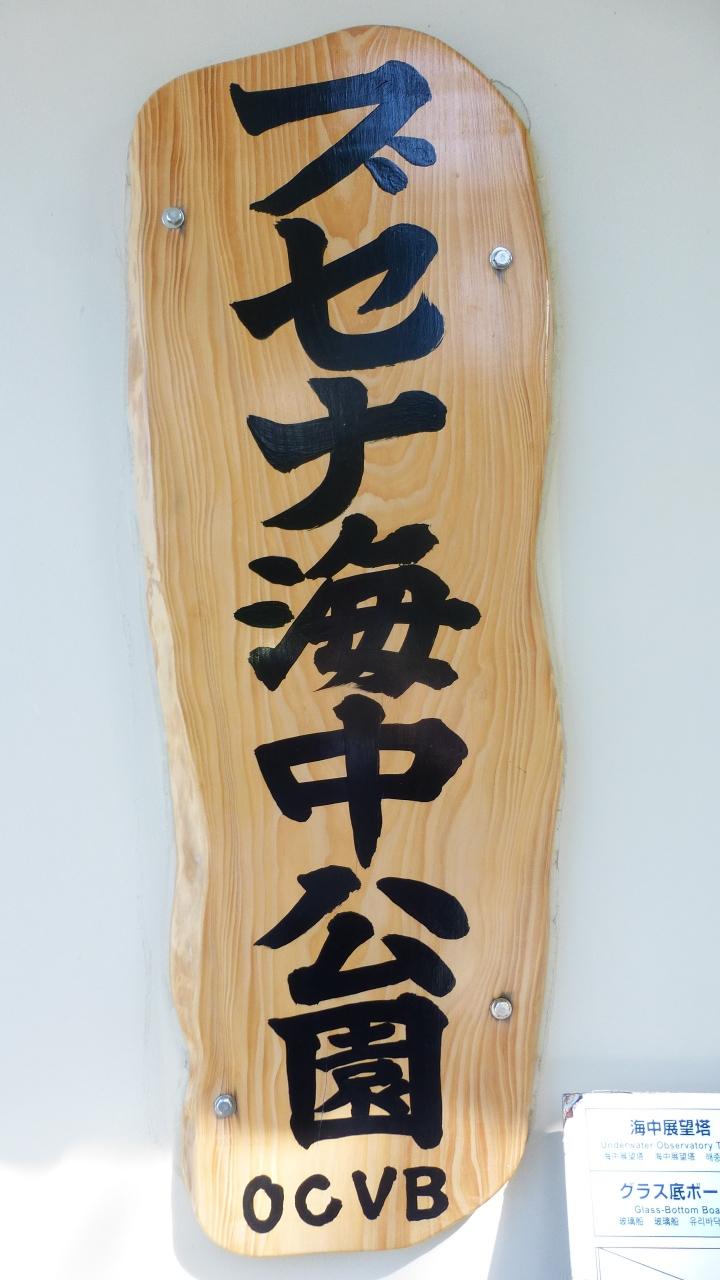 ブセナ海中公園
OCVB
海中展望塔
Underwater Observatory
海中展望塔 海中展望塔
グラス底ボー
Glass-Bottom Boa
玻璃船 玻璃船 유리바닥